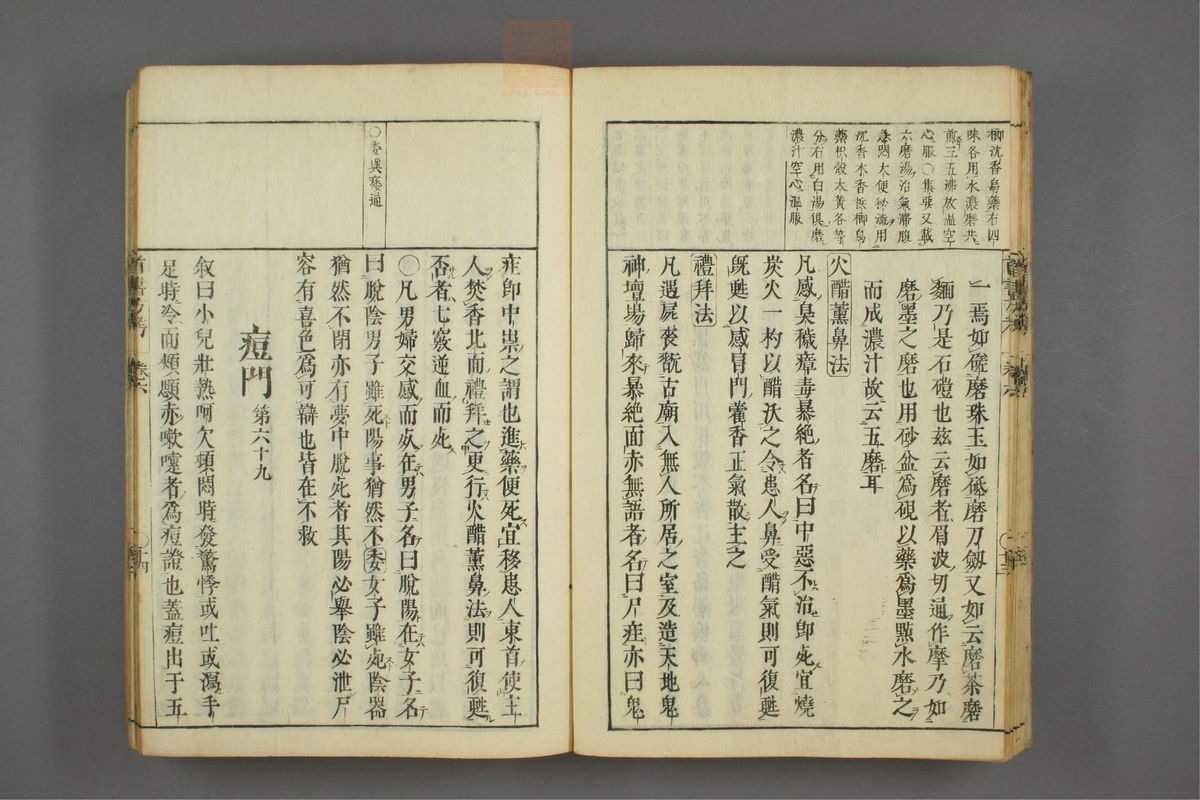 榔沈香烏藥右四
味各用水濃磨共
煎三五沸放溫空
心服○集要又載
六磨湯治氣滯腹
急悶大便秘澁用
沉香木香梹榔烏
藥枳殼大黃各等
分右用白湯俱磨
濃汁空心溫服
一焉如磋磨珠玉如砥磨刀劔又如云磨茶磨
麵乃是石磑也茲云磨者眉波切通作摩乃如
磨墨之磨也用砂盆爲硯以藥爲墨㸃水磨之
而成濃汁故云五磨耳
火醋薰鼻法
凡感臭穢瘴毒暴絶者名曰中惡不治卽死宜燒
炭火一杓以醋沃之令患人鼻受醋氣則可復甦
旣甦以感冒門藿香正氣散主之
禮拜法
凡遇屍喪翫古廟入無人所居之室及造天地鬼
神壇場歸來暴絶面赤無語者名曰尸疰亦曰鬼
○委與痿通
疰卽中祟之謂也進藥便死宜移患人東首使主
人焚香北面禮拜之更行火醋薰鼻法則可復甦
否者七竅迸血而死
○凡男婦交感而死在男子名曰脫陽在女子名
曰脫陰男子雖死陽事猶然不委女子雖死陰器
猶然不閉亦有夢中脫死者其陽必舉陰必泄尸
容有喜色爲可辯也皆在不救
痘門 第六十九
叙曰小兒壯熱呵欠頓悶時發驚悸或吐或瀉手
足時冷面頰顋赤嗽嚏者爲痘證也蓋痘出于五
卷六
十四